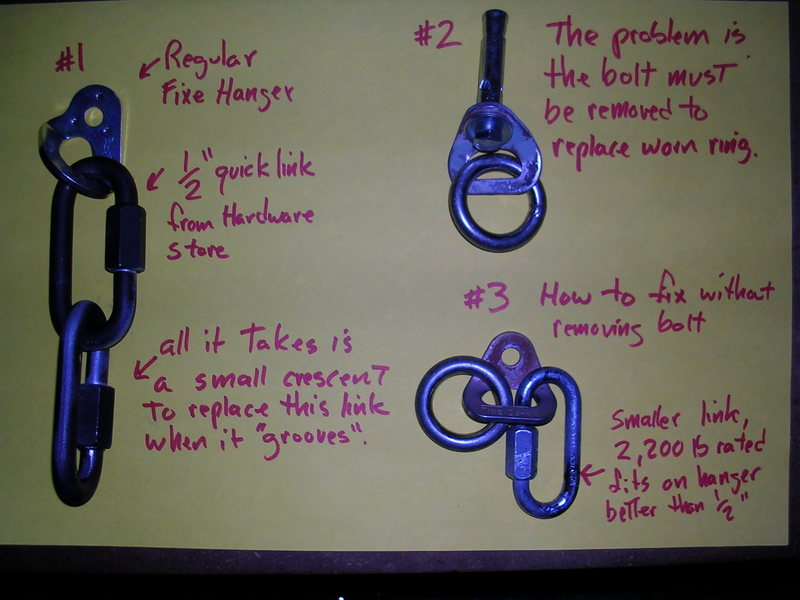 #1
Regular
Fixe Hanger
1/2" quick link
from Hardware
store
all it takes is
a small crescent
to replace this link
when it "grooves".
#2
The problem is
the bolt must
be removed to
replace worn ring.
#3 How to fix without
removing bolt
Smaller link,
2,200 lb rated
fits on hanger
better than 1/2"